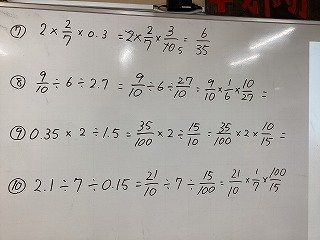 ⑦ 2 × 2/7 × 0.3 = 2 × 2/7 × 3/10 5 = 6/35
⑧ 9/10 ÷ 6 ÷ 2.7 = 9/10 ÷ 6 ÷ 27/10 = 9/10 × 1/6 × 10/27 =
⑨ 0.35 × 2 ÷ 1.5 = 35/100 × 2 ÷ 15/10 = 35/100 × 2 × 10/15 =
⑩ 2.1 ÷ 7 ÷ 0.15 = 21/10 ÷ 7 ÷ 15/100 = 21/10 × 1/7 × 100/15